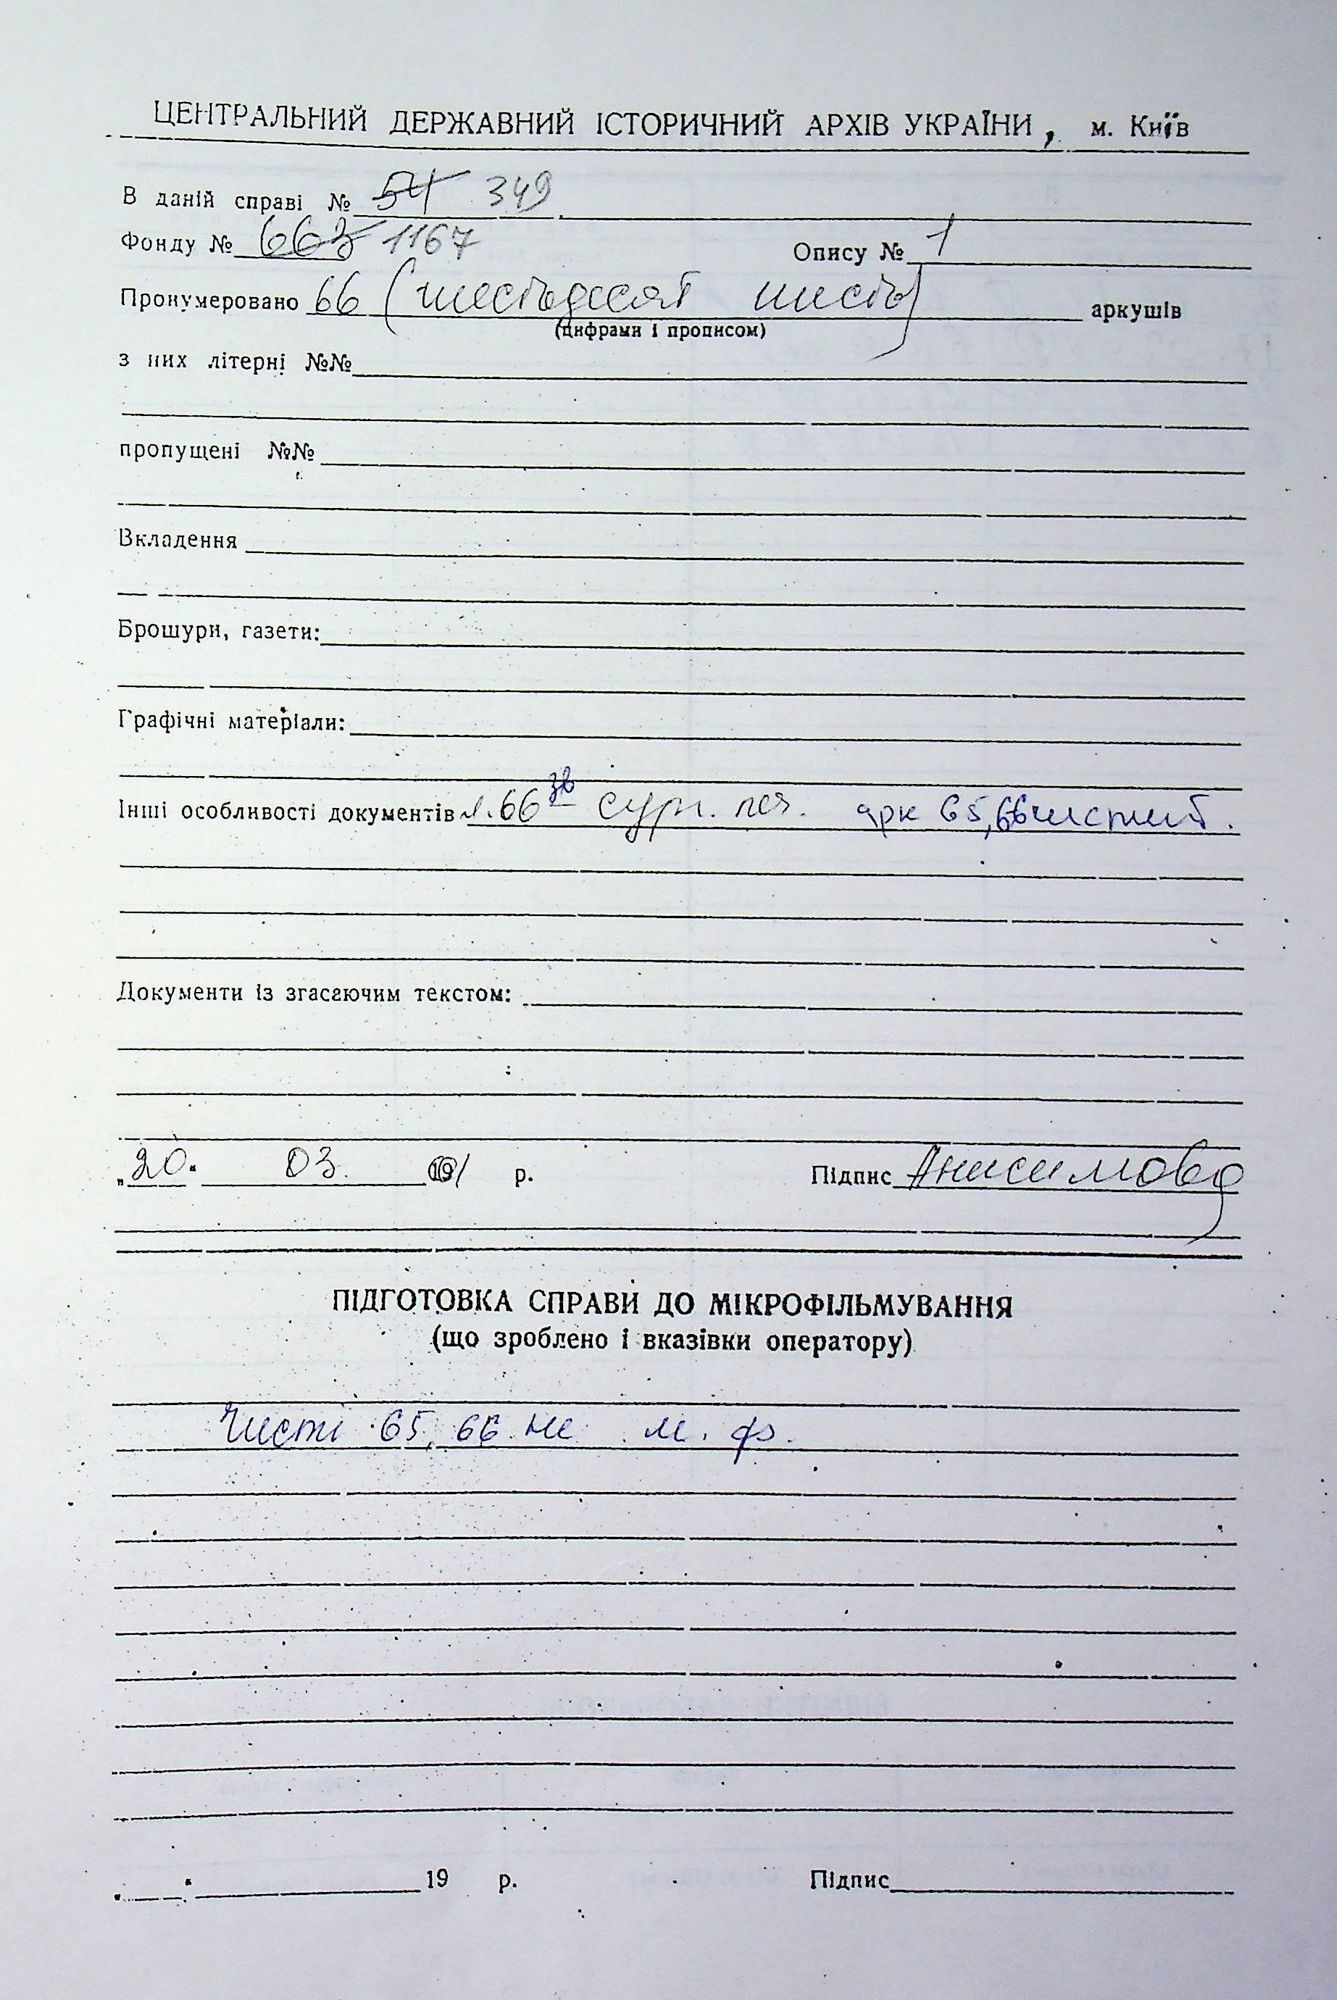 ЦЕНТРАЛЬНИЙ ДЕРЖАВНИЙ ІСТОРИЧНИЙ АРХІВ УКРАЇНИ, м. Київ
В даній справі № 54 349
Фонду № 663 1167 Опису № 1
Пронумеровано 66 (шестьдесят шесть) аркушів
(цифрами і прописом)
з них літерні №№
пропущені №№
Вкладення
Брошури, газети:
Графічні матеріали:
Інші особливості документів л. 66 зв сург. печ. арк 65, 66 чистий.
Документи із згасаючим текстом:
„20“ 03. р. Підпис Анисимова
ПІДГОТОВКА СПРАВИ ДО МІКРОФІЛЬМУВАННЯ
(що зроблено і вказівки оператору)
Чисті 65, 66 не м. ф.
19 р. Підпис